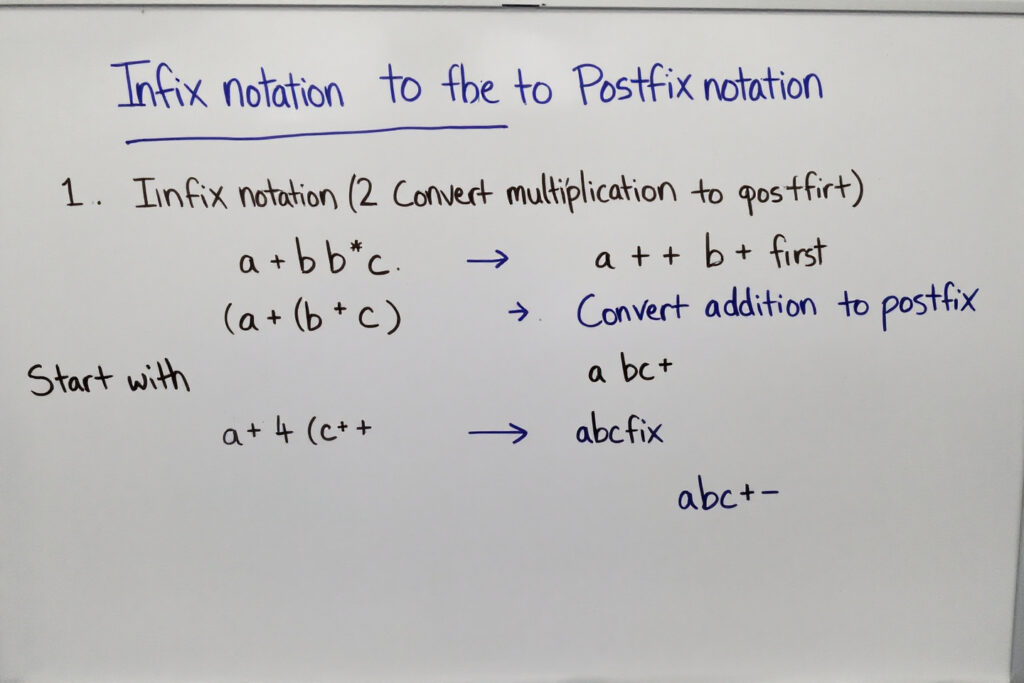 Infix notation to fbe to Postfix notation
1. Iinfix notation (2 Convert multiplication to qostfirt)
a + b b*c. → a + + b + first
(a + (b + c) → Convert addition to postfix
Start with
a bc+
a+ 4 (c++ → abcfix
abc+-